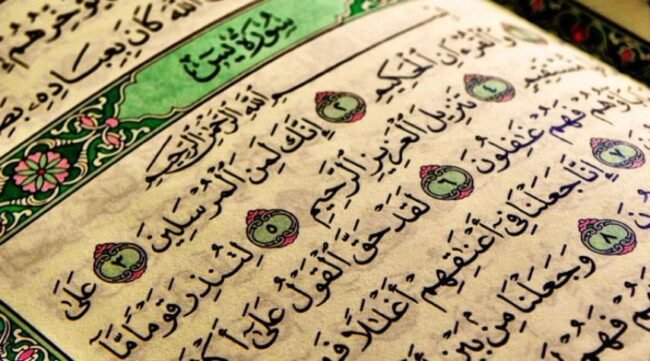 ٱللَّهَ كَانَ بِعِبَادِهِۦ
سُورَةُ يسٓ
ٱللَّهِ ٱلرَّحْمَـٰنِ ٱلرَّحِيمِ
وَٱلْقُرْءَانِ ٱلْحَكِيمِ ٢ إِنَّكَ لَمِنَ ٱلْمُرْسَلِينَ ٣ عَلَىٰ
مُّسْتَقِيمٍ ٤ تَنزِيلَ ٱلْعَزِيزِ ٱلرَّحِيمِ ٥ لِتُنذِرَ قَوْمًا مَّآ
فَهُمْ غَـٰفِلُونَ ٦ لَقَدْ حَقَّ ٱلْقَوْلُ عَلَىٰٓ
٧ إِنَّا جَعَلْنَا فِىٓ أَعْنَـٰقِهِمْ أَغْلَـٰلًا
٨ وَجَعَلْنَا مِنۢ بَيْنِ